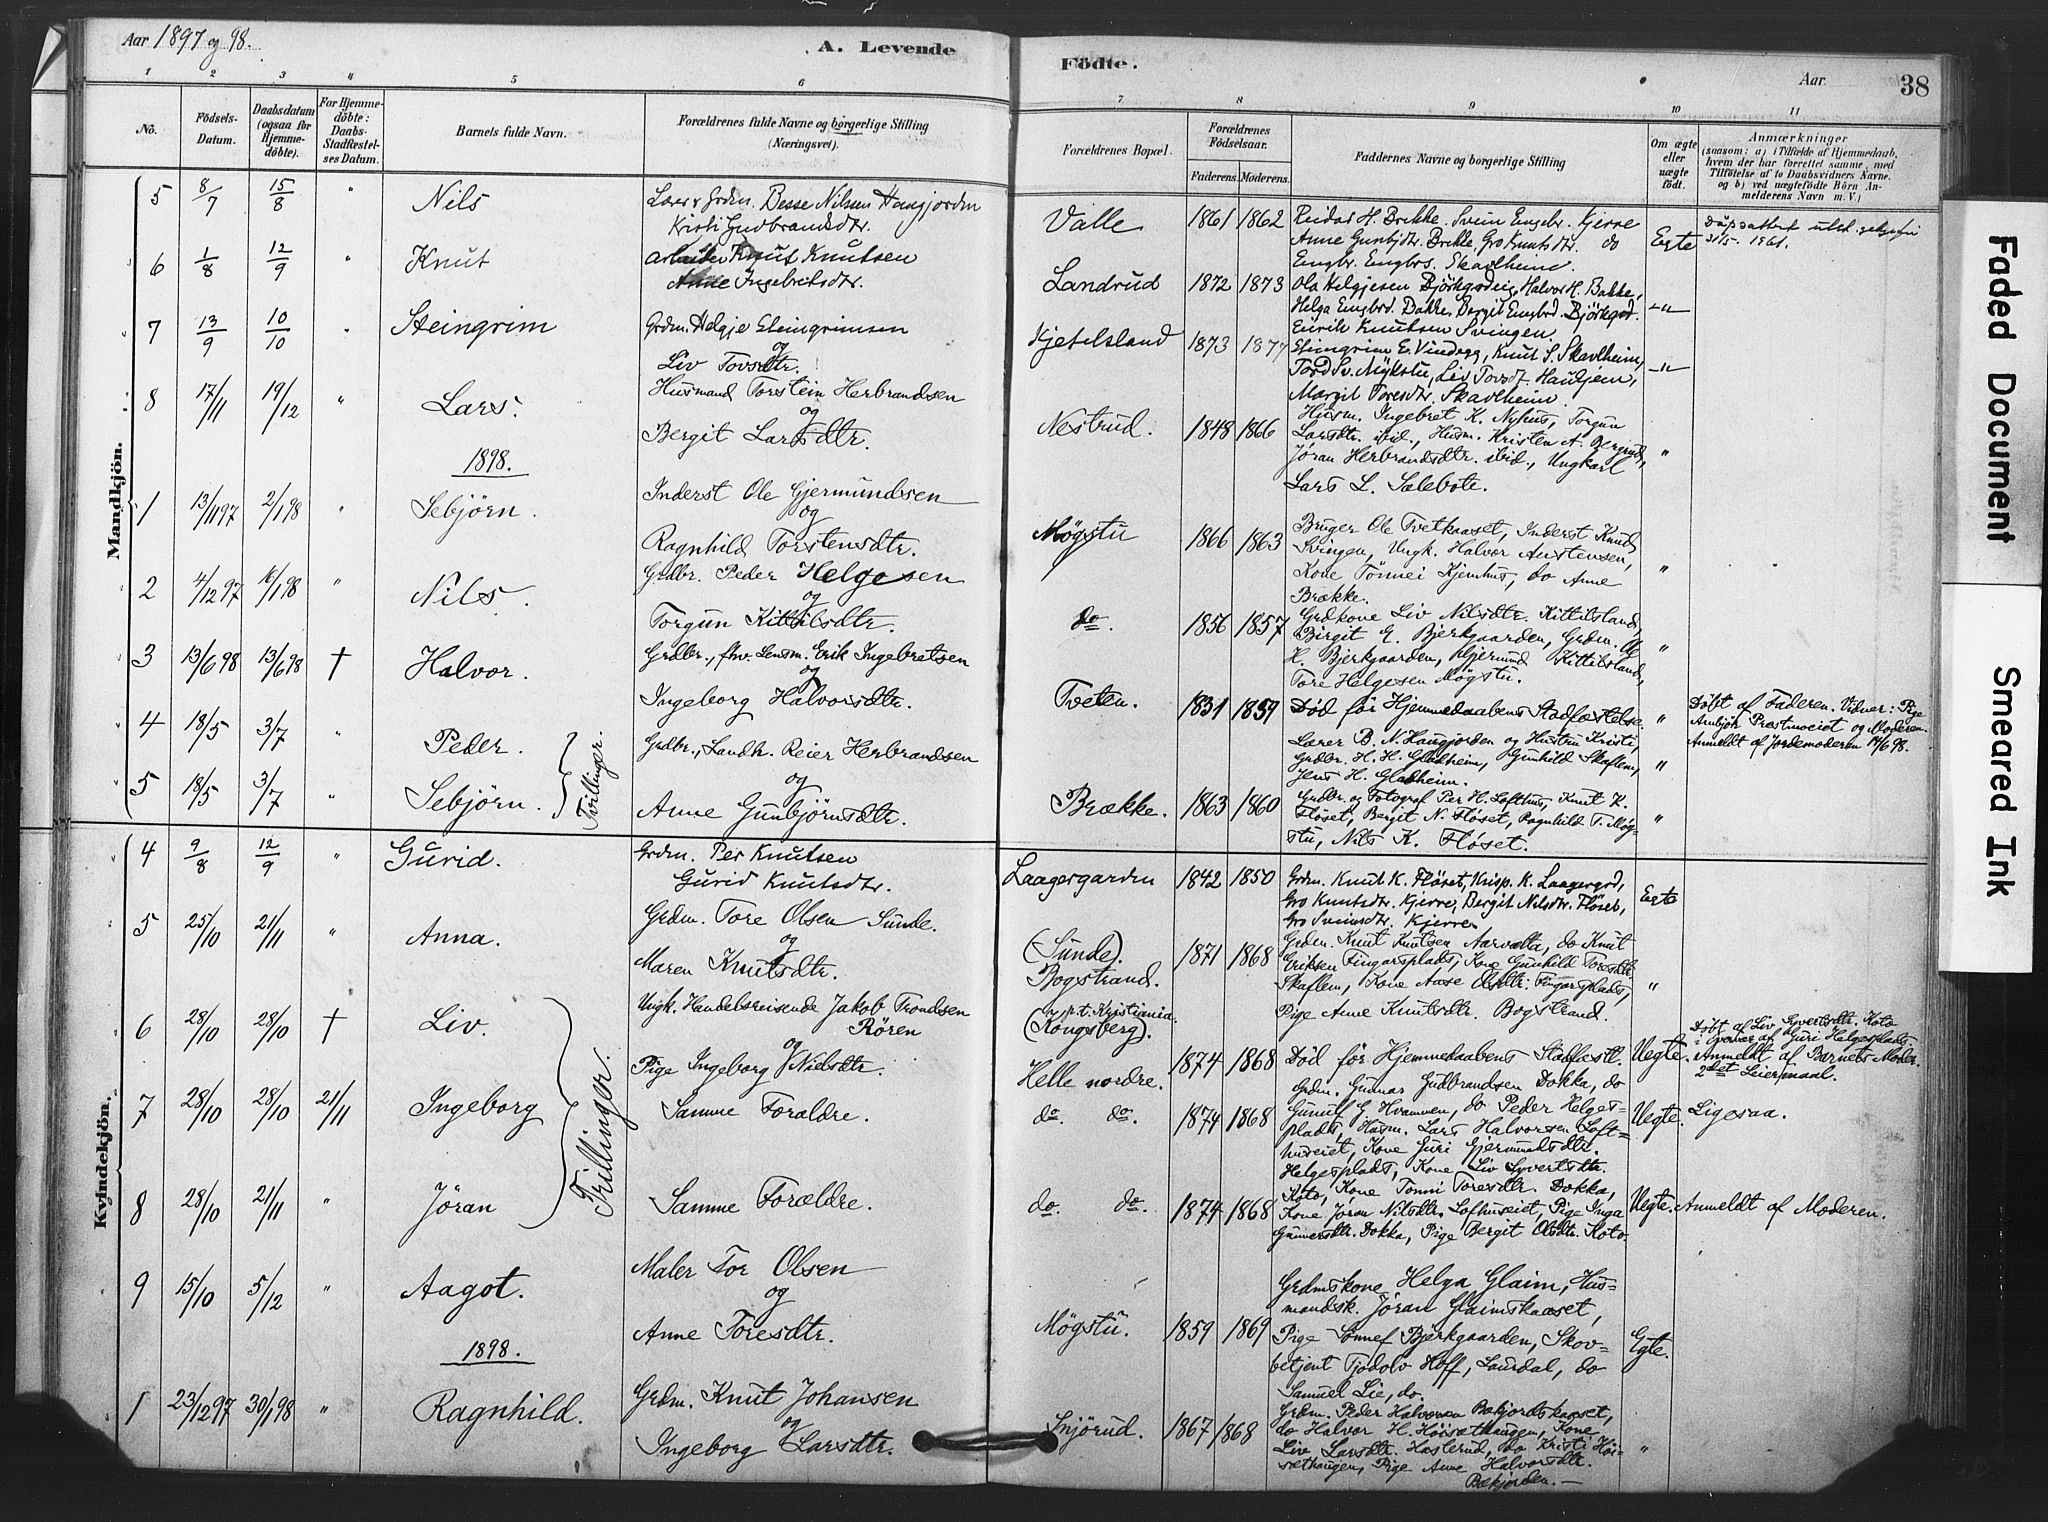 Aar 1897 og 98.
A. Levende
Födte.
Aar
38
1 2 3 " 5 6 7 8 9 10 11
No.
Födsels-Datum.
Daabsdatum (ogsaa for Hjemmedöbte).
For Hjemmedöbte: Daabs-Stadfæstelses Datum.
Barnets fulde Navn.
Forældrenes fulde Navne og borgerlige Stilling (Næringsvei).
Forældrenes Bopæl.
Forældrenes Födselsaar.
Faderens. Moderens.
Faddernes Navne og borgerlige Stilling
Om ægte eller uægte födt.
Anmærkninger
(saasom: a) i Tilfælde af Hjemmedaab, hvem der har forrettet samme, med Tilföielse af to Daabsvidners Navne. og b) ved uægtefödte Börn Anmelderens Navn m. V.)
Mandkjön.
5 8/7 15/8 " Nils
Lærer & Grdm. Besse Nilsen Haugjorden
Kristi Gudbrandsdtr.
Valle 1861 1862
Reidar H. Brekke. Svein Engbr. Kjerre
Anne Gunbjdtr. Brekke, Gro Knutsdtr. do
Engbr. Engbrs. Skavlheim.
Egte
Dåpsattest utst. gebyrfri
31/5-1961.
6 1/8 12/9 " Knut
Arbeider Knut Knutsen
Anne Ingebritsdtr.
Landrud 1872 1873
Ola Helgjesen Björkgrdeig, Halvor H. Bakke,
Helga Engbrd. Dakke, Bergit Engbrd. Björkgrd.
Eirik Knutsen Svingen.
-"-
7 13/9 10/10 " Steingrim
Grdm. Helgje Steingrimsen
og
Liv Tovsdtr.
Kjetilsland 1873 1877
Steingrim E. Vindegg, Knut S. Skavlheim,
Tord Sv. Mykstu, Liv Tovsd. Haugjem,
Margit Toresdtr. Skavlheim.
-"-
8 17/11 19/12 " Lars.
Husmand Torstein Herbrandsen
og
Bergit Larsdtr.
Nestrud. 1848 1866
Husm. Ingebret K. Nyhus, Torgun
Larsdtr. ibid., Husm. Kristen A. Bergrud,
Jøran Herbrandsdtr. ibid., Ungkarl
Lars L. Salebote.
"
1898.
1 13/11 97 2/1 98 " Sebjörn.
Inderst Ole Gjermundsen
og
Ragnhild Torstensdtr.
Møgstu 1866 1863
Bruger Ole Tvetkaaset, Inderst Knud
Svingen, Ungk. Halvor Austensen,
Kone Tönnei Kjemhus, do Anne
Brække.
"
2 4/12 97 16/1 98 " Nils.
Grdbr. Peder Helgesen
og
Torgun Kittilsdtr.
do. 1856 1857
Grdkone Liv Nilsdtr. Kittilsland,
Birgit E. Bjerkgaarden, Grdm. Ole
H. Bjerkgaarden, Gjermund Kittilsland,
Tore Helgesen Møgstu.
"
3 13/6 98 13/6 98 † Halvor.
Grdbr., fhv. Lensm. Erik Ingebretsen
og
Ingeborg Halvorsdtr.
Tveten. 1831 1859
Död før Hjemmedaabens Stadfæstelse.
"
Døbt af Faderen. Vidner: Pige
Ambjør Prestmoeiet og Moderen.
Anmeldt af Jordemoderen 14/6 98.
4 18/5 3/7 " Peder.
5 18/5 3/7 " Sebjörn.
Tvillinger.
Grdbr., Landh. Reier Herbrandsen
og
Anne Gunbjörnsdtr.
Brække. 1863 1860
Lærer B. N. Haugjorden og Hustru Kristi,
Grdbr. H. H. Gladheim, Gunhild Skaflem,
Jens H. Gladheim.
Grdbr. og Fotograf Per H. Lofthus, Knut K.
Fløset, Bergit N. Fløset, Ragnhild T. Møg-
stu, Nils K. Fløset.
" "
Kvindekjön.
4 9/8 12/9 " Gurid.
Grdm. Per Knutsen
Gurid Knutsdtr.
Laagergarden 1842 1850
Grdm. Knut K. Fløset, Krisp. K. Laagergrd,
Gro Knutsdtr. Kjerre, Bergit Nilsdtr. Fløset,
Gro Svinsdtr. Kjerre
Egte
5 25/10 21/11 " Anna.
Grdm. Tore Olsen Sunde.
og
Maren Knutsdtr.
(Sunde).
Bogstrand.
1871 1868
Grdm. Knut Knutsen Aarvelta, do Knut
Eriksen Fingarsplads, Kone Gunhild Toresdtr.
Skaflem, Kone Aase Olsdtr. Fingarsplads,
Pige Anne Knutsdtr. Bogstrand.
"
6 28/10 28/10 † Liv.
Ungk. Handelsreisende Jakob Trondsen
Rören
og
Pige Ingeborg Nielsdtr.
p.t. Kristiania.
(Kongsberg).
Helle nordre.
1874 1868
Död før Hjemmedaabens Stadfæstl.
Uegte.
Döbt af Liv Syvertsdtr. Koto
i Overvær af Guri Helgesplads.
Anmeldt af Barnets Moder.
2det Leiermaal.
7 28/10 28/10 21/11 Ingeborg
Samme Forældre.
do. do. 1874 1868
Grdm. Gunnar Gudbrandsen Dokka, do
Gunulf G. Hvammen, do Peder Helges-
plads, Husm. Lars Halvorsen Loft-
huseiet, Kone Guri Gjermundsdtr.
Helgesplads, Kone Liv Syvertsdtr.
Uegte. Ligesaa.
8 28/10 21/11 " Jøran
Trillinger.
Samme Forældre.
do. do. 1874 1868
Koto, Kone Tönni Toresdtr. Dokka,
Kone Jøran Nilsdtr. Lofthuseiet, Pige Inga
Gunnersdtr. Dokka, Pige Bergit Olsdtr. Koto.
Uegte. Anmeldt af Moderen.
9 15/10 5/12 " Aagot.
Maler Tor Olsen
og
Anne Toresdtr.
Møgstu. 1859 1869
Grdmskone Helga Glaim, Hus-
mandsk. Jøran Glaimskaaset,
Pige Sønnef Bjerkgaarden, Skov-
betjent Tjodolv Hoff, Laurdal, do
Samuel Lie, do.
Egte.
1898.
1 23/12 97 30/1 98 " Ragnhild.
Grdm. Knut Johansen
og
Ingeborg Larsdtr.
Snjörud. 1867 1868
Grdm. Peder Halvorsen Bækjordskaaset,
do Halvor H. Høisæthaugen, Kone
Liv Larsdtr. Haslerud, do Kristi Høi-
sæthaugen, Pige Anne Halvorsdtr.
Bækjorden.
"
Faded Document
Smeared Ink